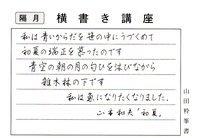 隔月 横書き講座
私は青いからだを世の中にうづくめて
初夏の端正を慕ったのです
青空の朝の月の匂ひを浴びながら
雑木林の下です
私は風になりたくなりました。
山本和夫「初夏」
山田枠筆書